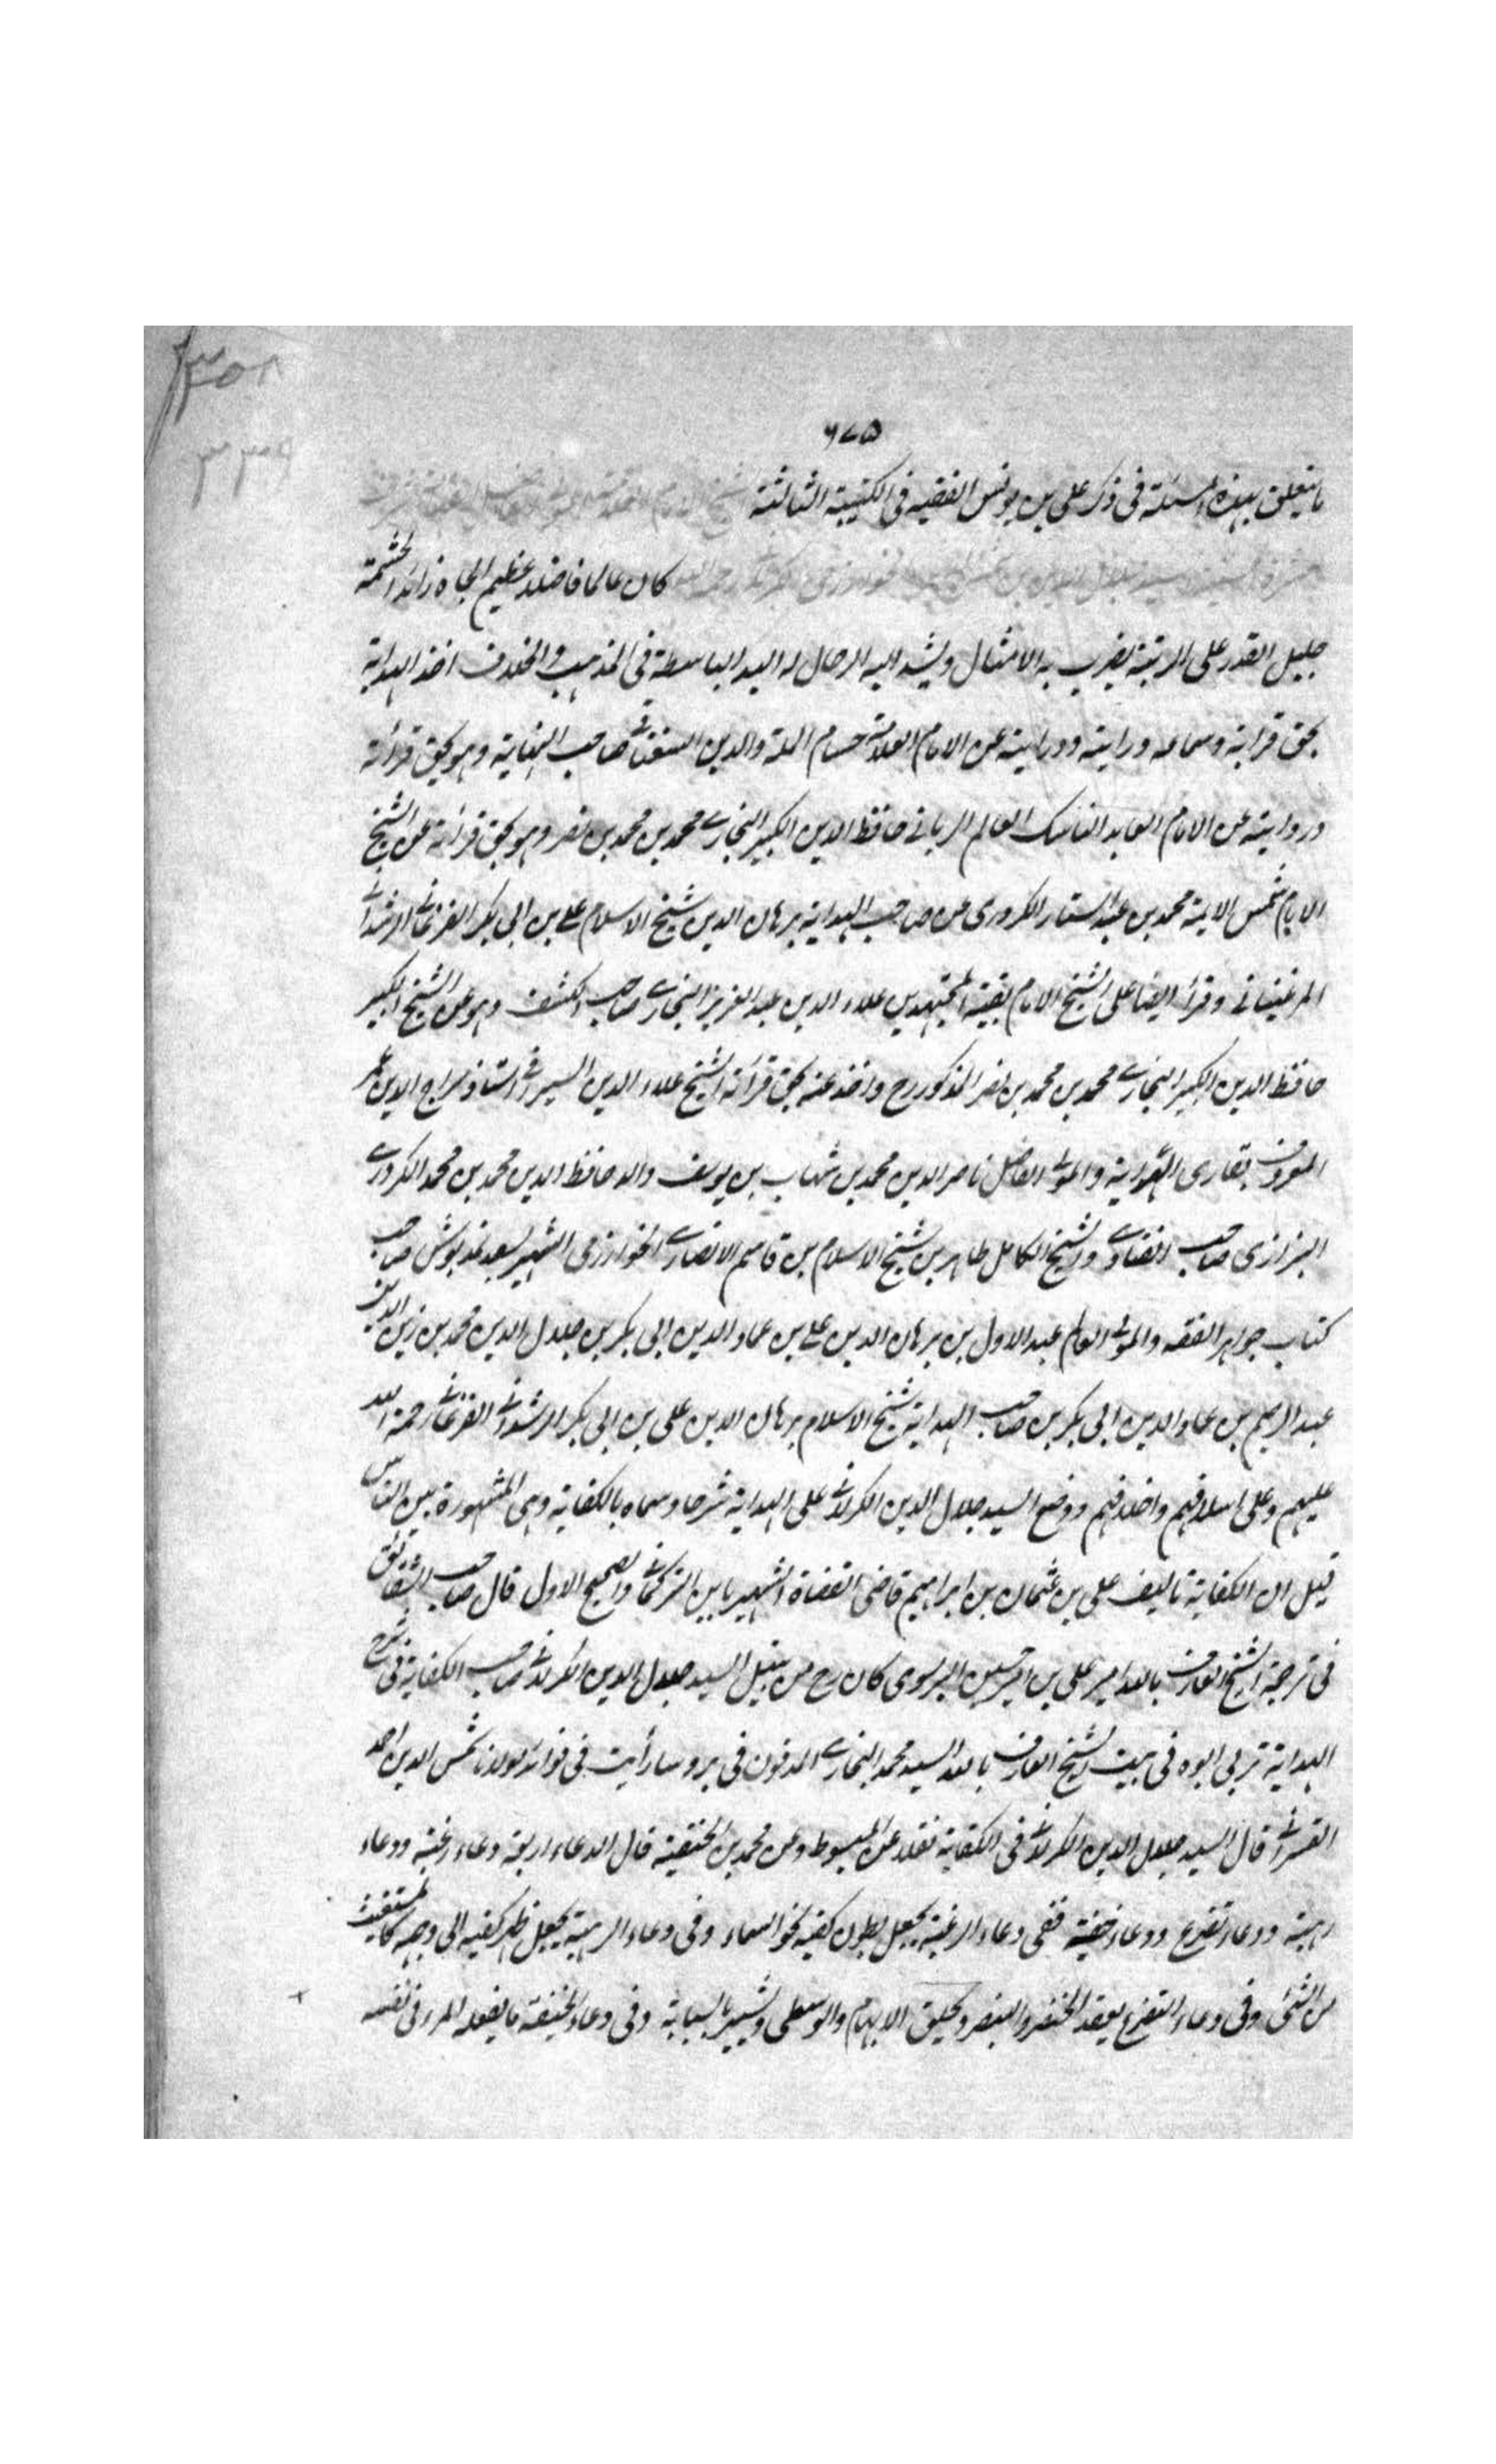 ٦٧٥
ما يتعلق بهذه المسئلة فى ذكر على بن يونس الفقيه فى الكتيبة الثالثة
كان عالما فاضلا عظيم الجاه زائد الحشمة
جليل القدر على الرتبة يضرب به الامثال ويشد اليه الرحال له اليد الباسطة فى المذهب والخلاف اخذ الهداية
بحق قرائة وسماعه ورايته ودرايته عن الامام العلامة حسام الملة والدين السغناقى صاحب النهاية وهو بحق قرائة
وروايته عن الامام العابد الناسك العالم الربانى حافظ الدين الكبير البخارى محمد بن محمد بن نصر وهو بحق قرائة عن الشيخ
الامام شمس الايمة محمد بن عبد الستار الكردرى عن صاحب الهداية برهان الدين شيخ الاسلام على بن ابى بكر الفرغانى الرشدانى
المرغينانى وقرأ ايضا على الشيخ الامام بقية المجتهدين علاء الدين عبد العزيز البخارى صاحب الكشف وهو عن الشيخ الكبير
حافظ الدين الكبير البخارى محمد بن محمد بن نصر المذكور رح واخذ عنه بحق قرائة الشيخ علاء الدين السيرافى استاذ سراج الدين عمر
المعروف بقارى الهداية والمولى الفاضل ناصر الدين محمد بن شهاب بن يوسف والد حافظ الدين محمد بن محمد الكردرى
البزازى صاحب الفتاوى والشيخ الكامل طاهر بن شيخ الاسلام بن قاسم الانصارى الخوارزمى الشهير بسعد غديوش صاحب
كتاب جواهر الفقه والمولى العالم عبد الاول بن برهان الدين على بن عماد الدين ابى بكر بن جلال الدين محمد بن زين الدين
عبد الرحيم بن عماد الدين ابى بكر بن صاحب الهداية شيخ الاسلام برهان الدين على بن ابى بكر الرشدانى الفرغانى رحمة الله
عليهم وعلى اسلافهم واخلافهم ووضع السيد جلال الدين الكرلانى على الهداية شرحا وسماه بالكفاية وهى المشهورة بين الناس
قيل ان الكفاية تاليف على بن عثمان بن ابراهيم قاضى القضاة الشهير بابن التركمانى والصحيح الاول قال صاحب الشقائق
فى ترجمة الشيخ العارف بالله امير على بن امير حسين البرسوى كان رح من نسل السيد جلال الدين الكرلانى صاحب الكفاية فى شرح
الهداية تربى ابوه فى بيت الشيخ العارف بالله السيد محمد البخارى المدفون فى بروسا رأيت فى فوائد مولانا شمس الدين احمد
القرمانى قال السيد جلال الدين الكرلانى فى الكفاية نقلا عن المبسوط وعن محمد بن الحنفية قال الدعاء اربعة دعاء رغبة ودعاء
رهبة ودعاء تضرع ودعاء خفية ففى دعاء الرغبة يجعل بطون كفيه نحو السماء وفى دعاء الرهبة يجعل ظهر كفيه الى وجهه كالمستغيث
من الشئ وفى دعاء التضرع يعقد الخنصر والبنصر ويحلق الابهام والوسطى ويشير بالسبابة وفى دعاء الخفية ما يفعله المرء فى نفسه